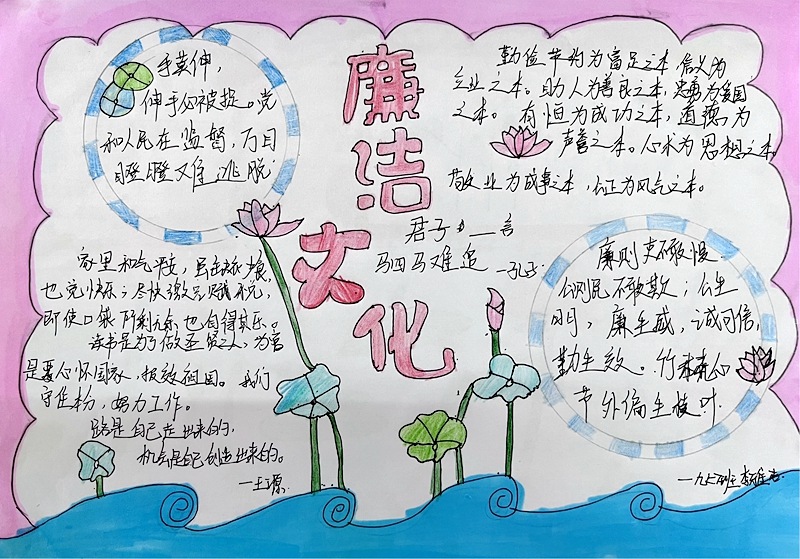 手莫伸，
伸手必被捉。党
和人民在监督，万目
睽睽难逃脱
廉洁
文化
勤俭节约为富足之本，信义为
立业之本。助人为善良之本，忠勇为爱国
之本。有恒为成功之本，道德为
声誉之本。心求为思想之本
敬业为成事之本，公正为风气之本。
君子一言
驷马难追 —孔子
家里和气平安，
也完快乐；
即使口袋 也自得其乐。
读书是为了做圣贤之人，为官
是要心怀国家，报效祖国。我们
守住本份，努力工作。
路是自己走出来的，
机会是自己创造出来的。
廉则吏不敢慢
公则民不敢欺；公生
明，廉生威，诚可信，
勤生效。竹
节外偏生枝叶